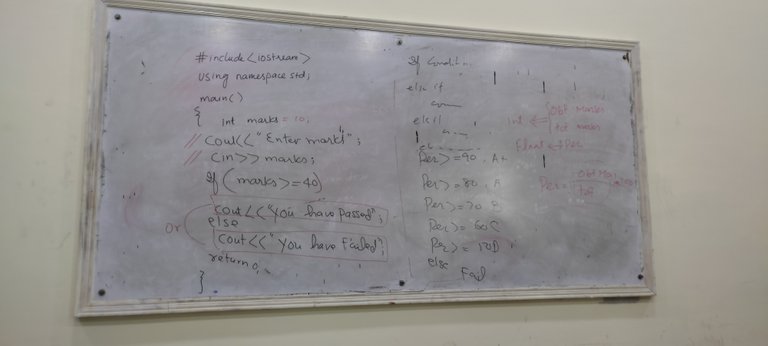 #include<iostream>
using namespace std;
main()
{ int marks = 10;
// Cout<<"Enter marks";
// Cin>> marks;
If (marks>=40)
cout<<"You have passed";
else
Or
cout<<"You have Failed";
return 0;
}
If Condition
else if
else if
Per>=90, A+
Per>=80, A
Per>=70 B
Per>= 60C
Per>=
else
Fail
int
Obt Marks
tot marks
float Per
Per =
Obt Mar
tot